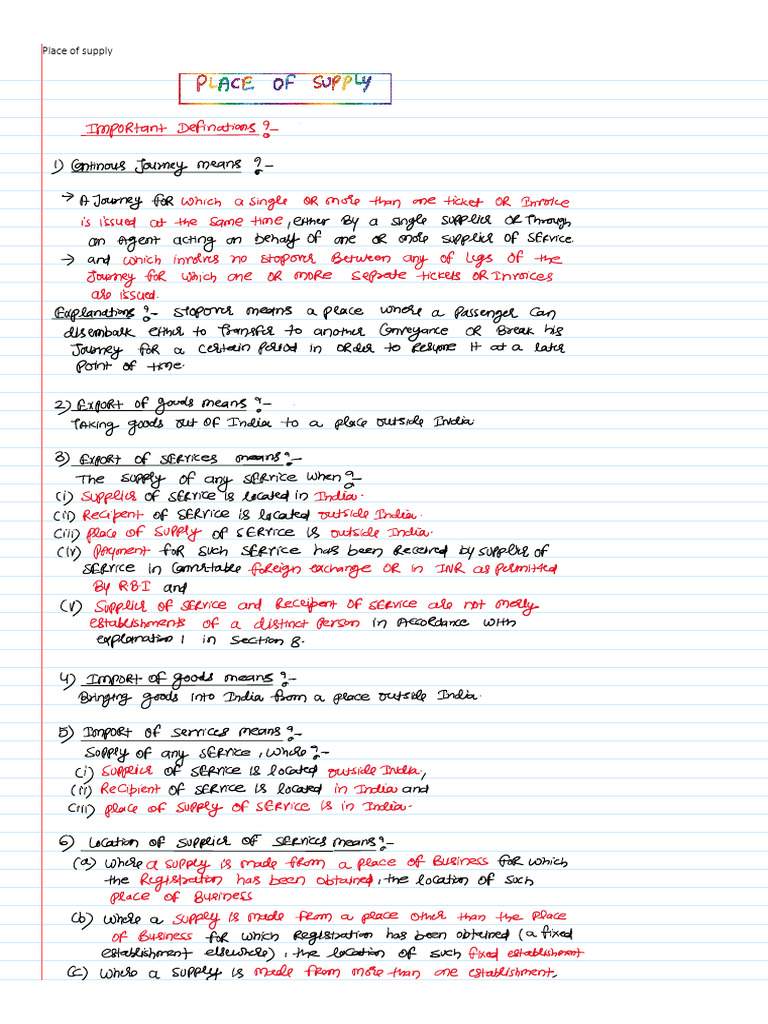 Place of supply
PLACE OF SUPPLY
Important Definations :-
1) Continous Journey means :-
→ A Journey for which a single or more than one ticket or Invoice
is issued at the same time, either by a single supplier or through
an Agent acting on behalf of one or more supplier of service.
→ and which involves no stopover between any of legs of the
Journey for which one or more seprate tickets or Invoices
are issued.
Explanations :- Stopover means a place where a passenger can
disembark either to transfer to another conveyance or break his
Journey for a certain period in order to resume it at a later
point of time.
2) Export of goods means :-
Taking goods out of India to a place outside India
3) Export of services means :-
The supply of any service when :-
(i) Supplier of service is located in India.
(ii) Recipent of service is located outside India.
(iii) place of supply of service is outside India.
(iv) Payment for such service has been received by supplier of
service in convertable foreign exchange or in INR as permitted
By R.B.I and
(v) Supplier of service and Receipent of service are not merly
establishments of a distinct person in accordance with
explanation 1 in section 8.
4) Import of goods means :-
Bringing goods into India from a place outside India.
5) Import of services means :-
Supply of any service, where :-
(i) Supplier of service is located outside India,
(ii) Recipient of service is located in India and
(iii) place of supply of service is in India.
6) Location of supplier of services means :-
(a) where a supply is made from a place of Business for which
the Registration has been obtained, the location of such
place of Business
(b) where a supply is made from a place other than the place
of Business for which Registration has been obtained (a fixed
establishment elsewhere), the location of such fixed establishment
(c) where a supply is made from more than one establishment,